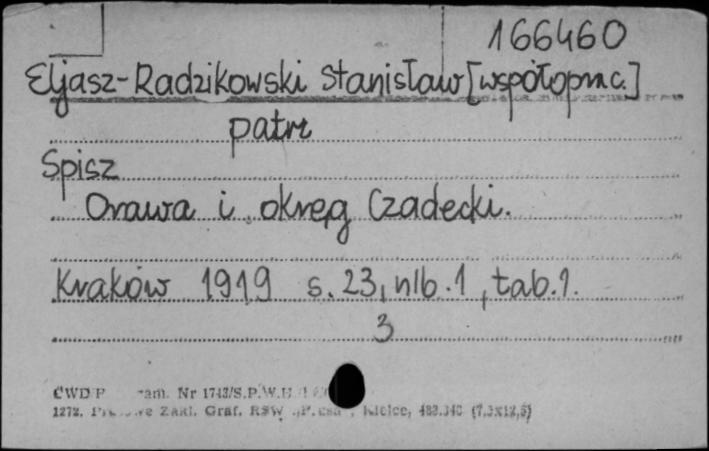 166460
Eljasz-Radzikowski Stanisław [współoprac.]
patrz
Spisz
Orawa i okręg Czadecki.
Kraków 1919 s. 23, nlb. 1, tab. 1.
3
CWD Nr 1743/S.P.W.H.
1272. Zakł. Graf. RSW Kielce, (7,5x12,5)